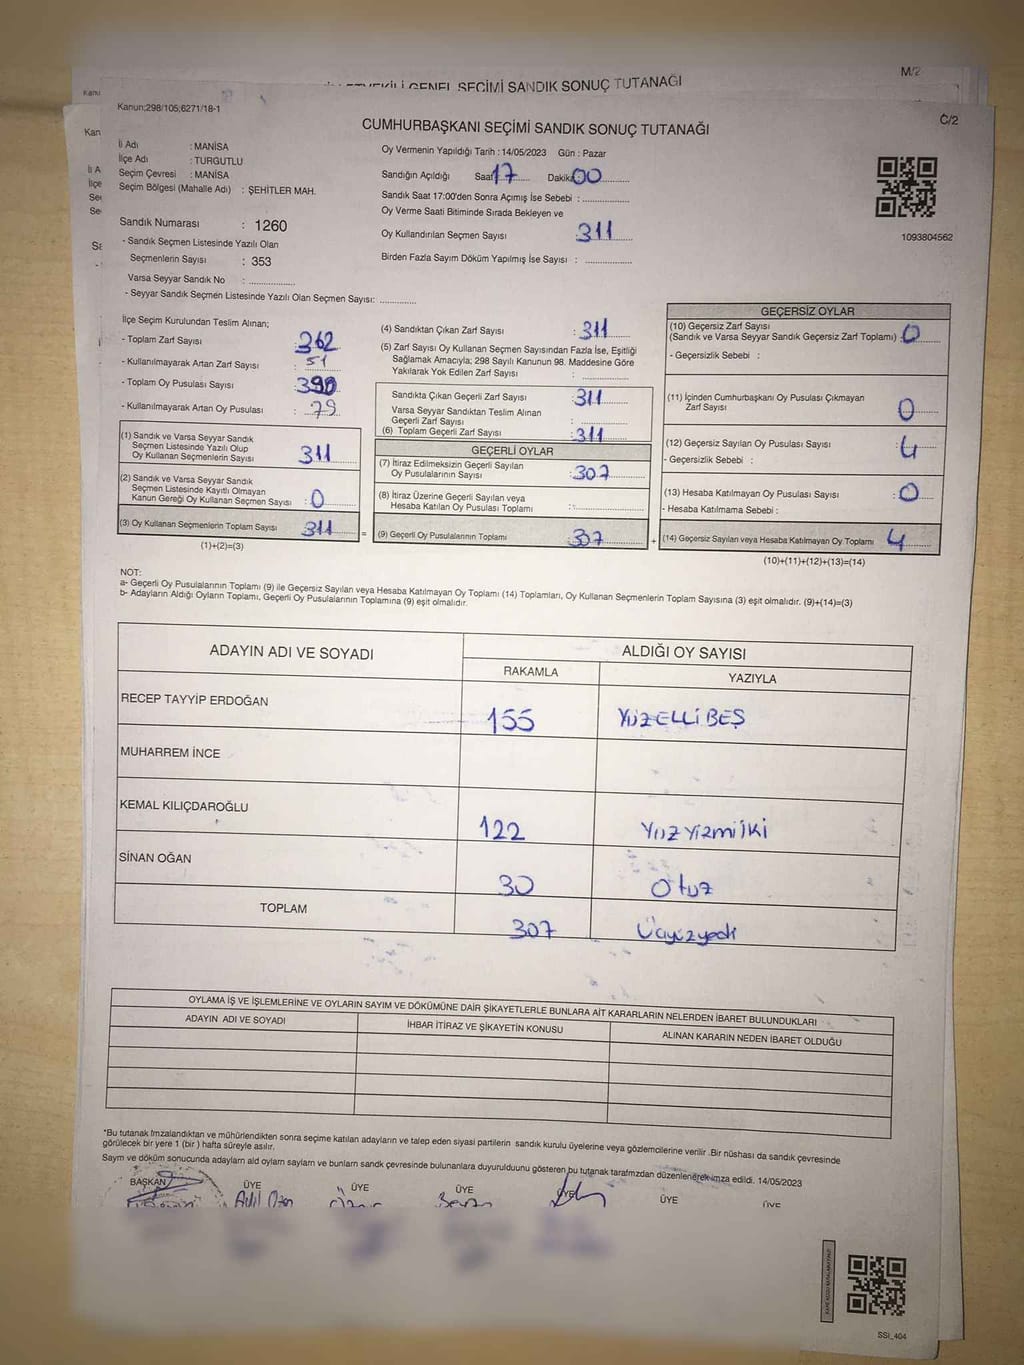 M/2
GENEL SEÇİMİ SANDIK SONUÇ TUTANAĞI
Kanun;298/105;6271/18-1
CUMHURBAŞKANI SEÇİMİ SANDIK SONUÇ TUTANAĞI
C/2
İl Adı : MANİSA
İlçe Adı : TURGUTLU
Seçim Çevresi : MANİSA
Seçim Bölgesi (Mahalle Adı) : ŞEHİTLER MAH.
Oy Vermenin Yapıldığı Tarih : 14/05/2023 Gün : Pazar
Sandığın Açıldığı Saat 17 Dakika 00
Sandık Saat 17:00'den Sonra Açımış İse Sebebi :
Oy Verme Saati Bitiminde Sırada Bekleyen ve
Oy Kullandırılan Seçmen Sayısı 311
Birden Fazla Sayım Döküm Yapılmış İse Sayısı :
1093804562
Sandık Numarası : 1260
- Sandık Seçmen Listesinde Yazılı Olan
Seçmenlerin Sayısı : 353
Varsa Seyyar Sandık No :
- Seyyar Sandık Seçmen Listesinde Yazılı Olan Seçmen Sayısı:
İlçe Seçim Kurulundan Teslim Alınan;
- Toplam Zarf Sayısı : 362
- Kullanılmayarak Artan Zarf Sayısı : 51
- Toplam Oy Pusulası Sayısı : 390
- Kullanılmayarak Artan Oy Pusulası : 79
(1) Sandık ve Varsa Seyyar Sandık
Seçmen Listesinde Yazılı Olup
Oy Kullanan Seçmenlerin Sayısı 311
(2) Sandık ve Varsa Seyyar Sandık
Seçmen Listesinde Kayıtlı Olmayan
Kanun Gereği Oy Kullanan Seçmen Sayısı : 0
(3) Oy Kullanan Seçmenlerin Toplam Sayısı 311 =
(1)+(2)=(3)
(4) Sandıktan Çıkan Zarf Sayısı : 311
(5) Zarf Sayısı Oy Kullanan Seçmen Sayısından Fazla İse, Eşitliği
Sağlamak Amacıyla; 298 Sayılı Kanunun 98. Maddesine Göre
Yakılarak Yok Edilen Zarf Sayısı :
Sandıkta Çıkan Geçerli Zarf Sayısı : 311
Varsa Seyyar Sandıktan Teslim Alınan
Geçerli Zarf Sayısı :
(6) Toplam Geçerli Zarf Sayısı : 311
GEÇERLİ OYLAR
(7) İtiraz Edilmeksizin Geçerli Sayılan
Oy Pusulalarının Sayısı : 307
(8) İtiraz Üzerine Geçerli Sayılan veya
Hesaba Katılan Oy Pusulası Toplamı :
(9) Geçerli Oy Pusulalarının Toplamı : 307 +
GEÇERSİZ OYLAR
(10) Geçersiz Zarf Sayısı
(Sandık ve Varsa Seyyar Sandık Geçersiz Zarf Toplamı) : 0
- Geçersizlik Sebebi :
(11) İçinden Cumhurbaşkanı Oy Pusulası Çıkmayan
Zarf Sayısı : 0
(12) Geçersiz Sayılan Oy Pusulası Sayısı : 4
- Geçersizlik Sebebi :
(13) Hesaba Katılmayan Oy Pusulası Sayısı : 0
- Hesaba Katılmama Sebebi :
(14) Geçersiz Sayılan veya Hesaba Katılmayan Oy Toplamı 4
(10)+(11)+(12)+(13)=(14)
NOT:
a- Geçerli Oy Pusulalarının Toplamı (9) ile Geçersiz Sayılan veya Hesaba Katılmayan Oy Toplamı (14) Toplamları, Oy Kullanan Seçmenlerin Toplam Sayısına (3) eşit olmalıdır. (9)+(14)=(3)
b- Adayların Aldığı Oyların Toplamı, Geçerli Oy Pusulalarının Toplamına (9) eşit olmalıdır.
ADAYIN ADI VE SOYADI ALDIĞI OY SAYISI
RAKAMLA YAZIYLA
RECEP TAYYİP ERDOĞAN 155 YÜZELLİBEŞ
MUHARREM İNCE
KEMAL KILIÇDAROĞLU 122 Yüzyirmiiki
SİNAN OĞAN 30 Otuz
TOPLAM 307 Üçyüzyedi
OYLAMA İŞ VE İŞLEMLERİNE VE OYLARIN SAYIM VE DÖKÜMÜNE DAİR ŞİKAYETLERLE BUNLARA AİT KARARLARIN NELERDEN İBARET BULUNDUKLARI
ADAYIN ADI VE SOYADI İHBAR İTİRAZ VE ŞİKAYETİN KONUSU ALINAN KARARIN NEDEN İBARET OLDUĞU
*Bu tutanak İmzalandıktan ve mühürlendikten sonra seçime katılan adayların ve talep eden siyasi partilerin sandık kurulu üyelerine veya gözlemcilerine verilir .Bir nüshası da sandık çevresinde
görülecek bir yere 1 (bir ) hafta süreyle asılır.
Sayım ve döküm sonucunda adayların ald oyların sayların ve bunların sandk çevresinde bulunanlara duyurulduunu gösteren bu tutanak tarafmzdan düzenlenerek imza edildi. 14/05/2023
BAŞKAN ÜYE ÜYE ÜYE ÜYE ÜYE ÜYE
SSI_404